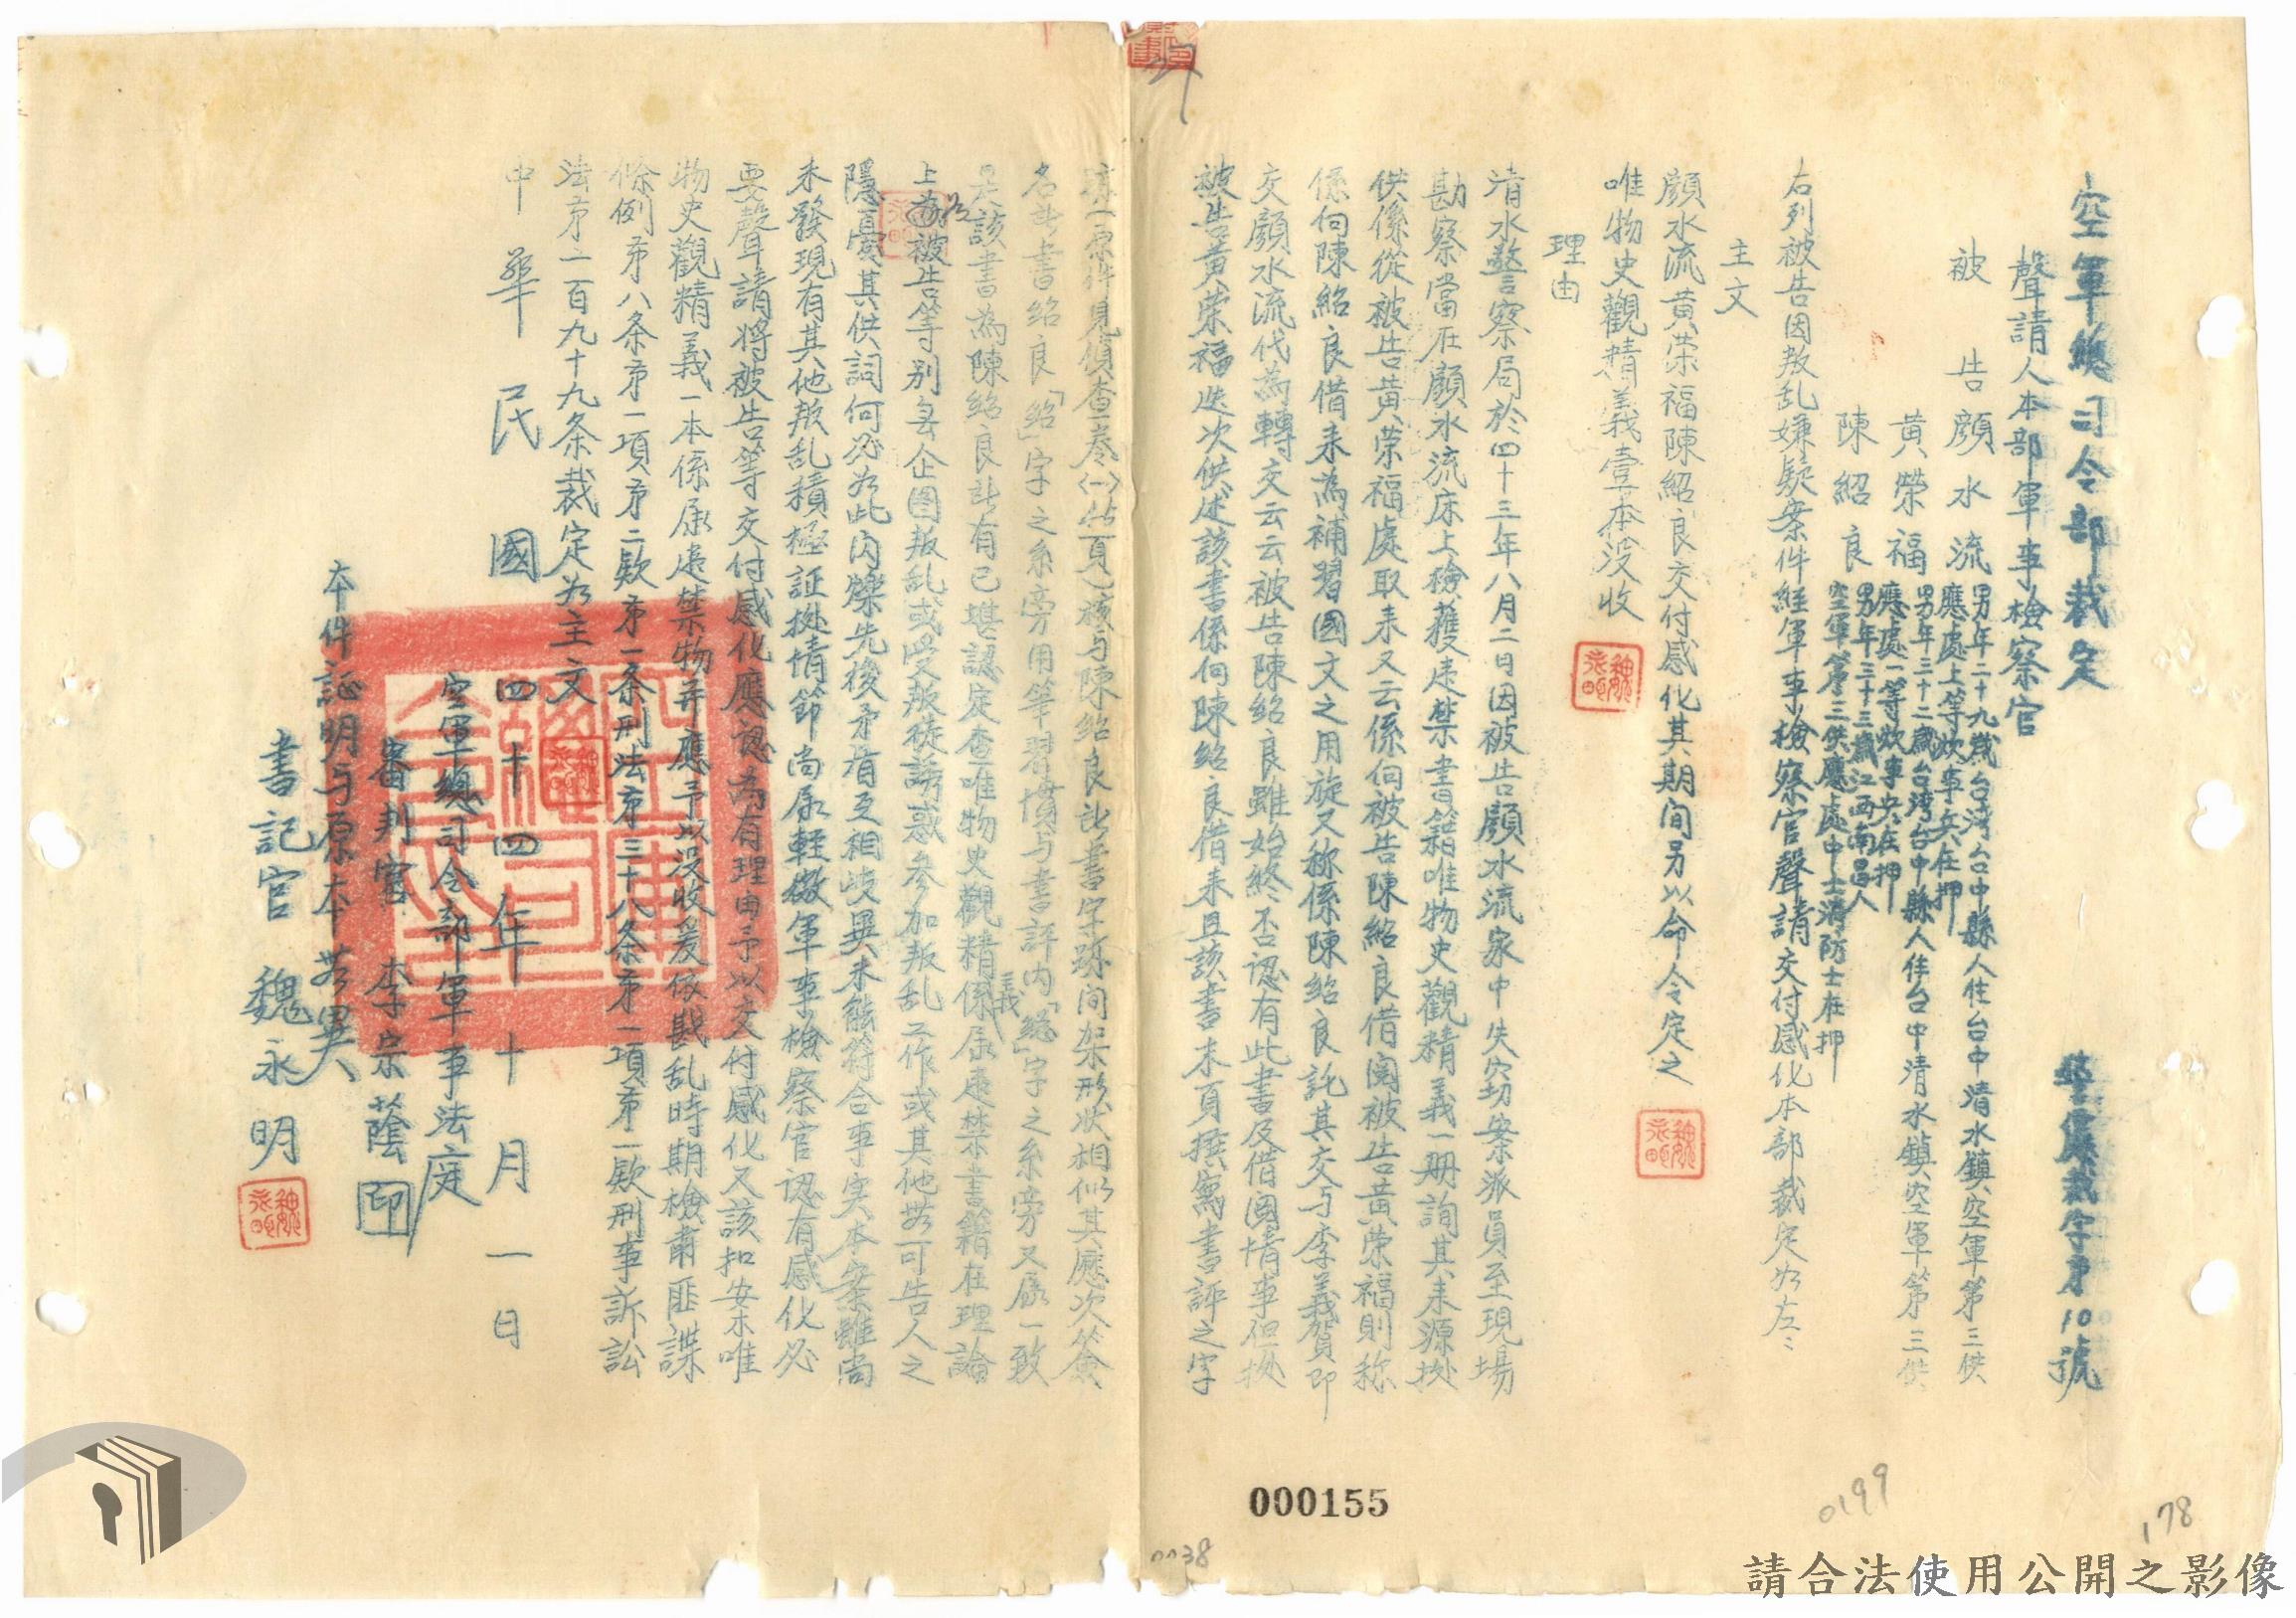 空軍總司令部裁定
聲請人本部軍事檢察官
被告顏水流 男年二十九歲台湾台中縣人住台中清水鎮空軍第三供
應處上等炊事兵在押
黃榮福 男年三十二歲台湾台中縣人住台中清水鎮空軍第三供
應處一等炊事兵在押
陳紹良 男年三十三歲江西南昌人
空軍第三供應處中士消防士在押
右列被告因叛乱嫌疑案件經軍事檢察官聲請交付感化本部裁定如左:
主文
顏水流黃荣福陳紹良交付感化其期间另以命令定之
唯物史觀精義壹本没收
理由
清水警察局於四十三年八月二日因被告顏水流家中失窃案派員至現場
勘察當在顏水流床上檢獲违禁書籍唯物史觀精義一册詢其来源拠
供係從被告黃荣福處取来又云係向被告陳紹良借閱被告黃荣福則称
係向陳紹良借来為補習國文之用旋又称係陳紹良託其交与李義賀即
交顏水流代為轉交云云被告陳紹良雖始終否認有此書及借閱情事但拠
被告黃荣福迭次供述該書係向陳紹良借来且該書末頁撰寫書評之字
跡(原件見偵查卷(一)頁)核与陳紹良訃書字跡间架形状相似其歷次簽
名訃書紹良「紹」字之糸旁用筆習慣与書評内「總」字之糸旁又屬一致
是該書為陳紹良所有已堪認定查唯物史觀精義係屬违禁書籍在理論
上如被告等别無企图叛乱或受叛徒誘惑參加叛乱工作或其他無可告人之
隱憂其供詞何必如此闪爍先後矛盾互相歧異未能符合事实本案雖尚
未發現有其他叛乱積極証拠情節尚屬輕微軍事檢察官認有感化必
要聲請將被告等交付感化應認為有理由予以交付感化又該扣案唯
物史觀精義一本係屬违禁物并應予以没收爰依戡乱時期檢肅匪諜
條例第八条第一項第二款第一条刑法第三十八条第一項第一款刑事訴訟
法第二百九十九条裁定如主文
中華民國四十四年十月一日
空軍總司令部軍事法庭
審判官 李宗蔭 印
本件証明与原本無異
書記官 魏永明
000155
0199
178
請合法使用公開之影像